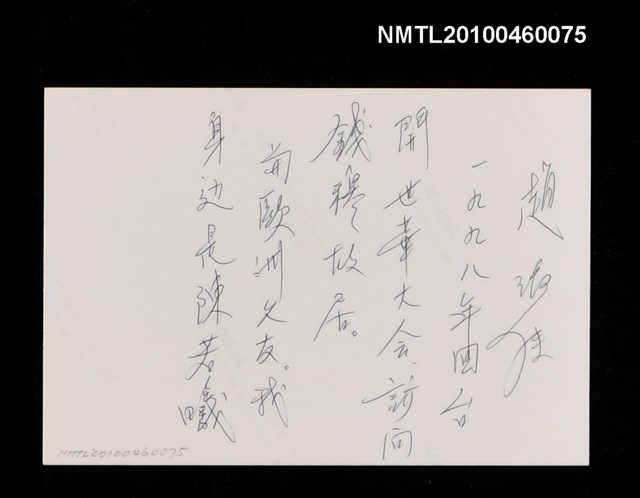 NMTL20100460075
趙淑俠
一九九八年回台
開世華大会、訪问
錢穆故居。
前歐洲文友。我
身边是陳若曦
NMTL20100460075